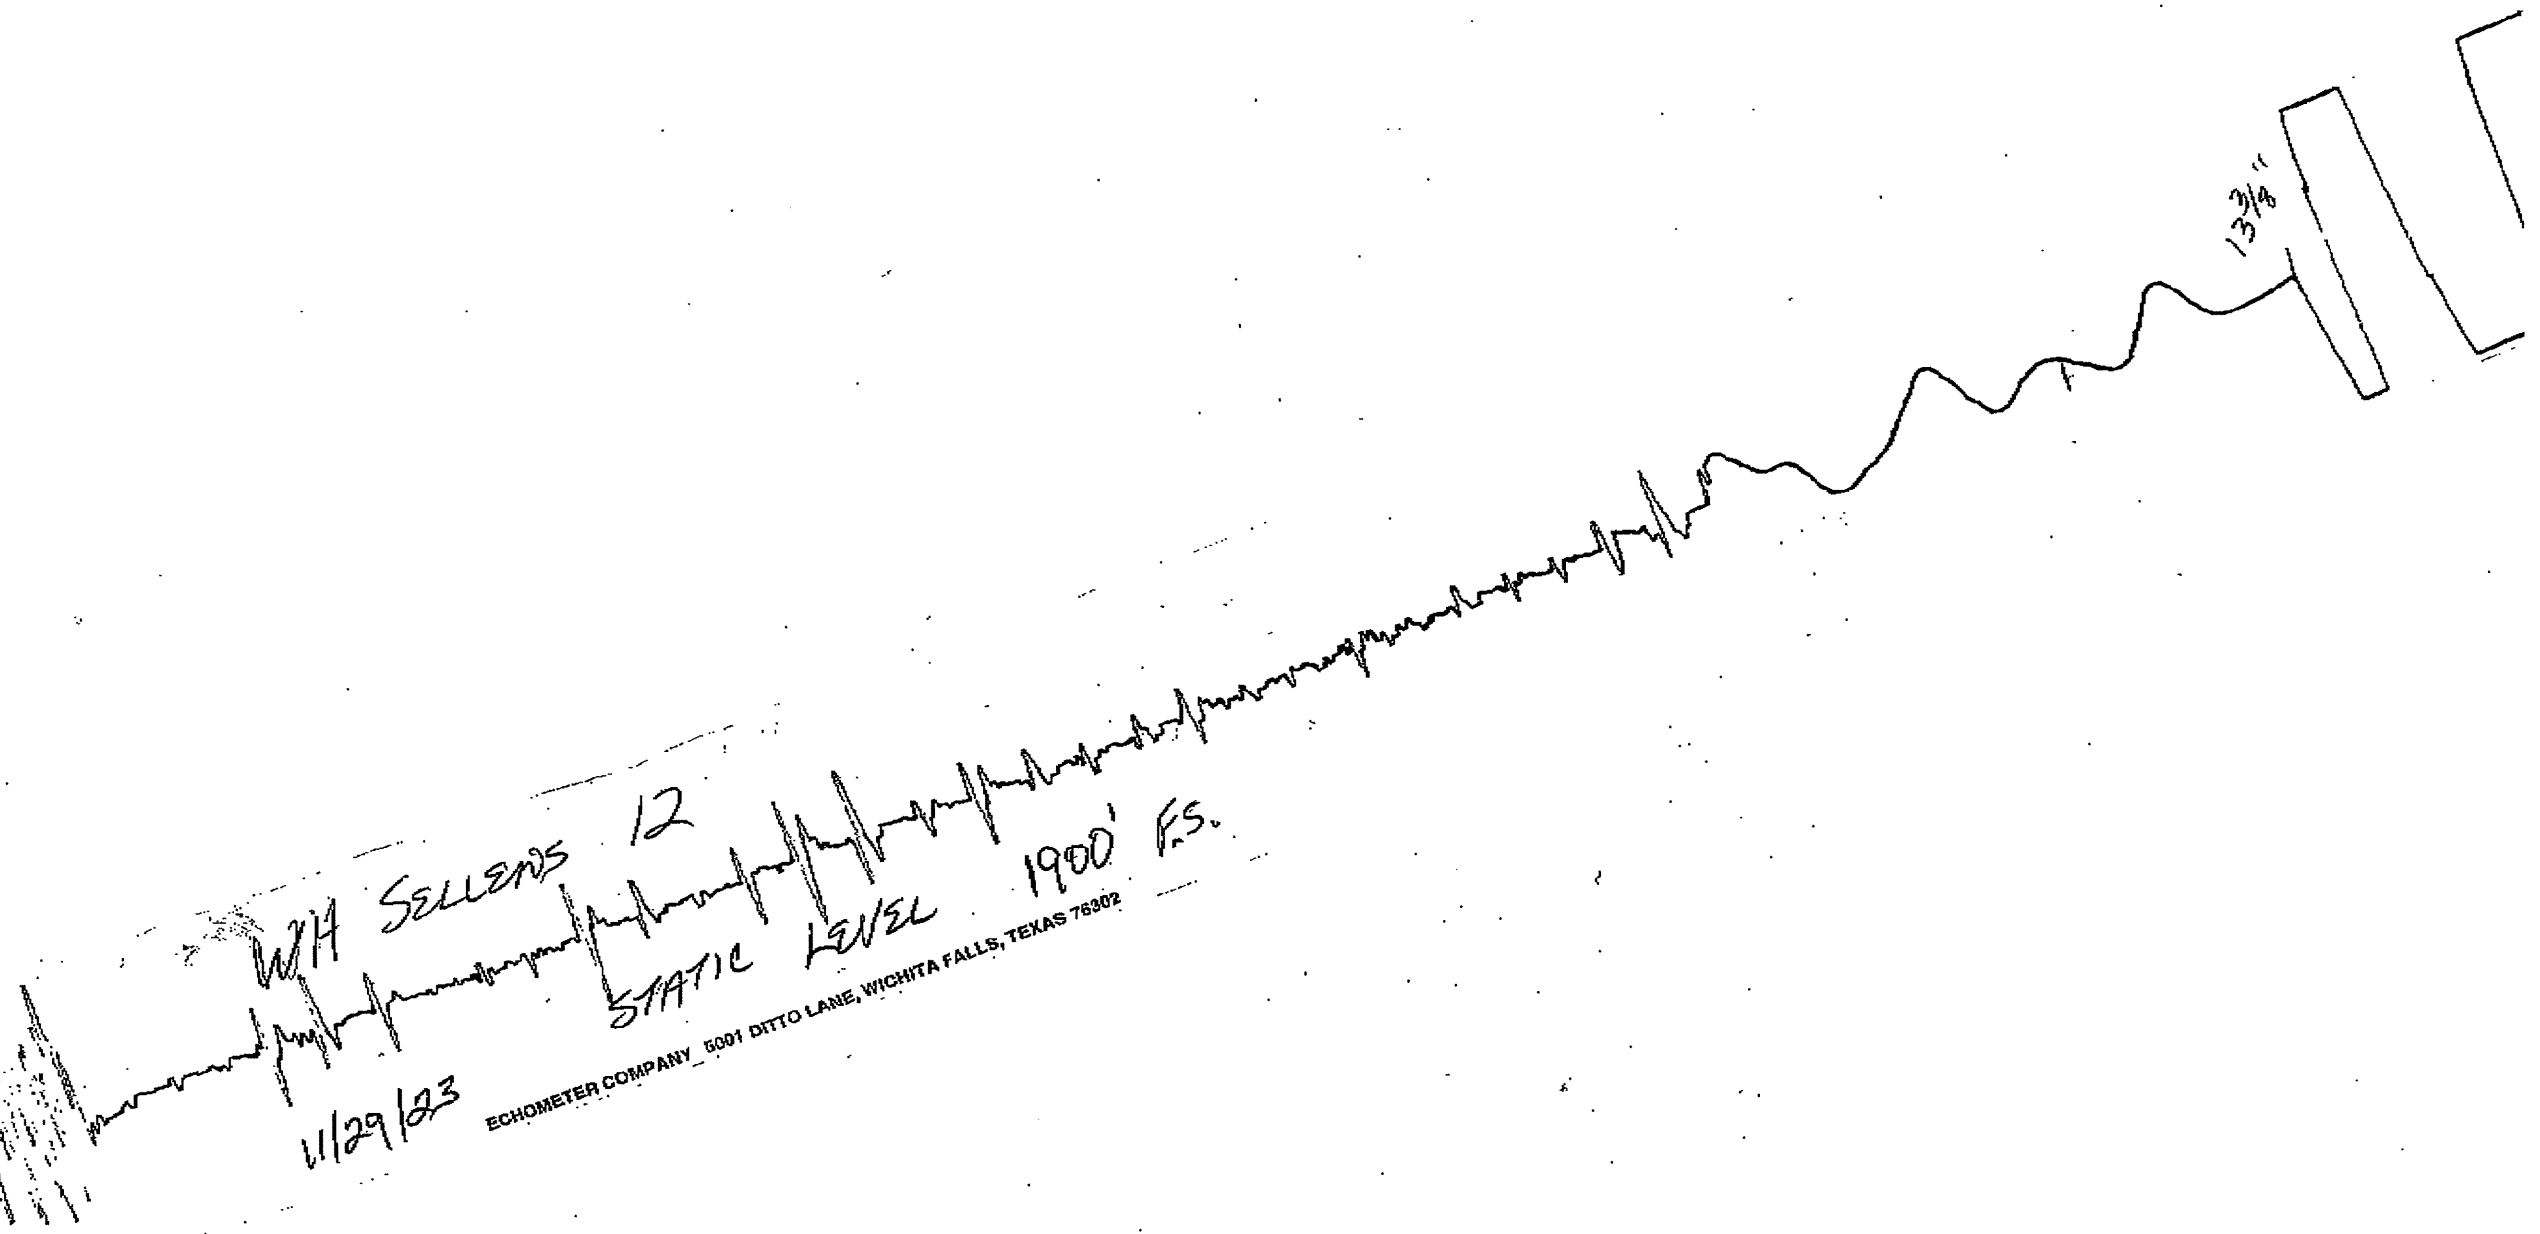 WH SELLENS 12
STATIC LEVEL 1900' F.S.
11/29/23
ECHOMETER COMPANY 5001 DITTO LANE, WICHITA FALLS, TEXAS 76302
13 3/8"